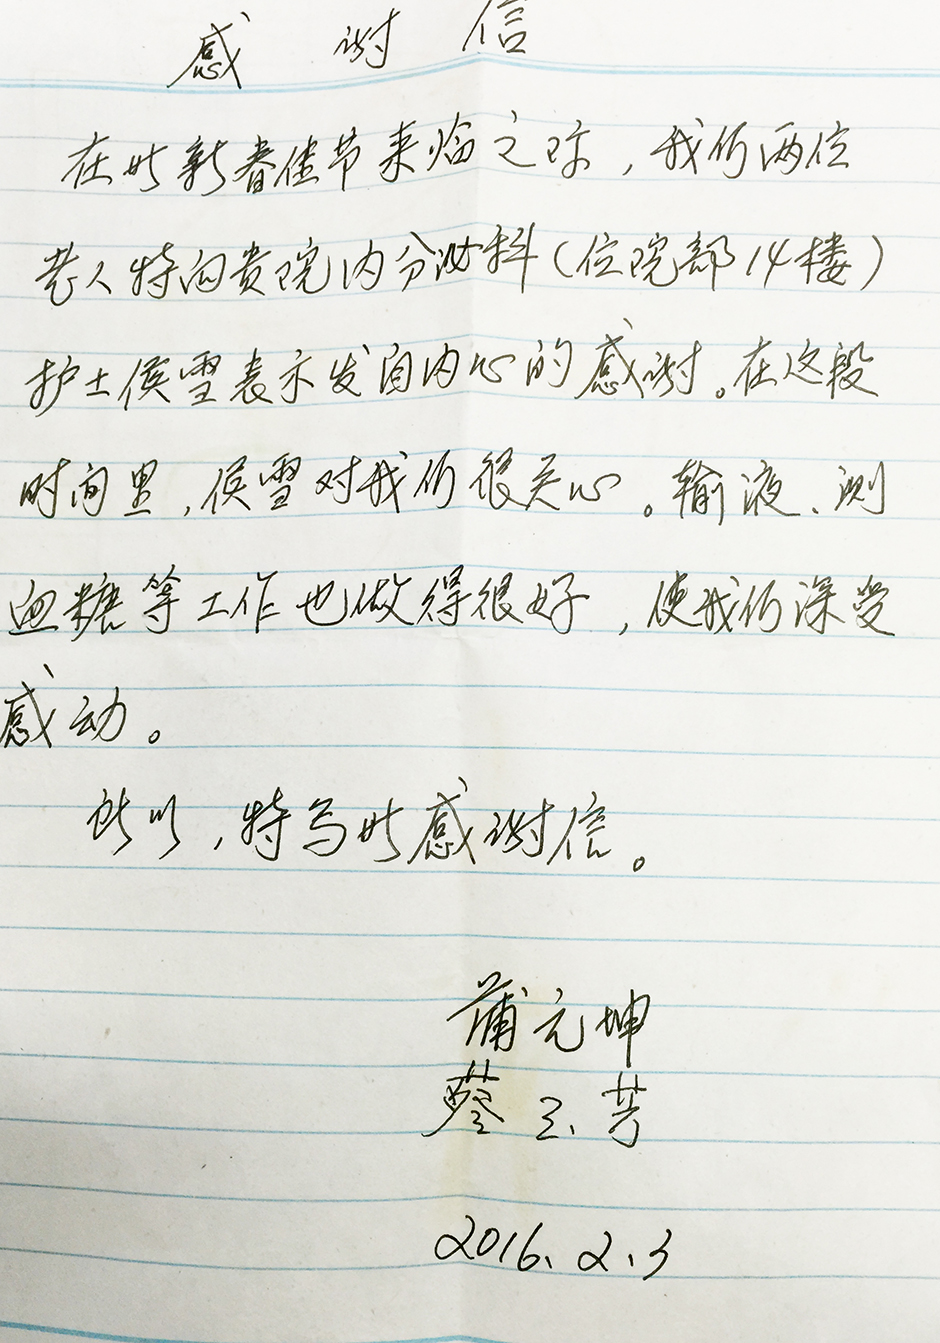 感谢信
在此新春佳节来临之际，我们两位
老人特向贵院内分泌科（位院部14楼）
护士侯雪表示发自内心的感谢。在这段
时间里，侯雪对我们很关心。输液、测
血糖等工作也做得很好，使我们深受
感动。
所以，特写此感谢信。
蒲元坤
蔡玉芳
2016.2.3